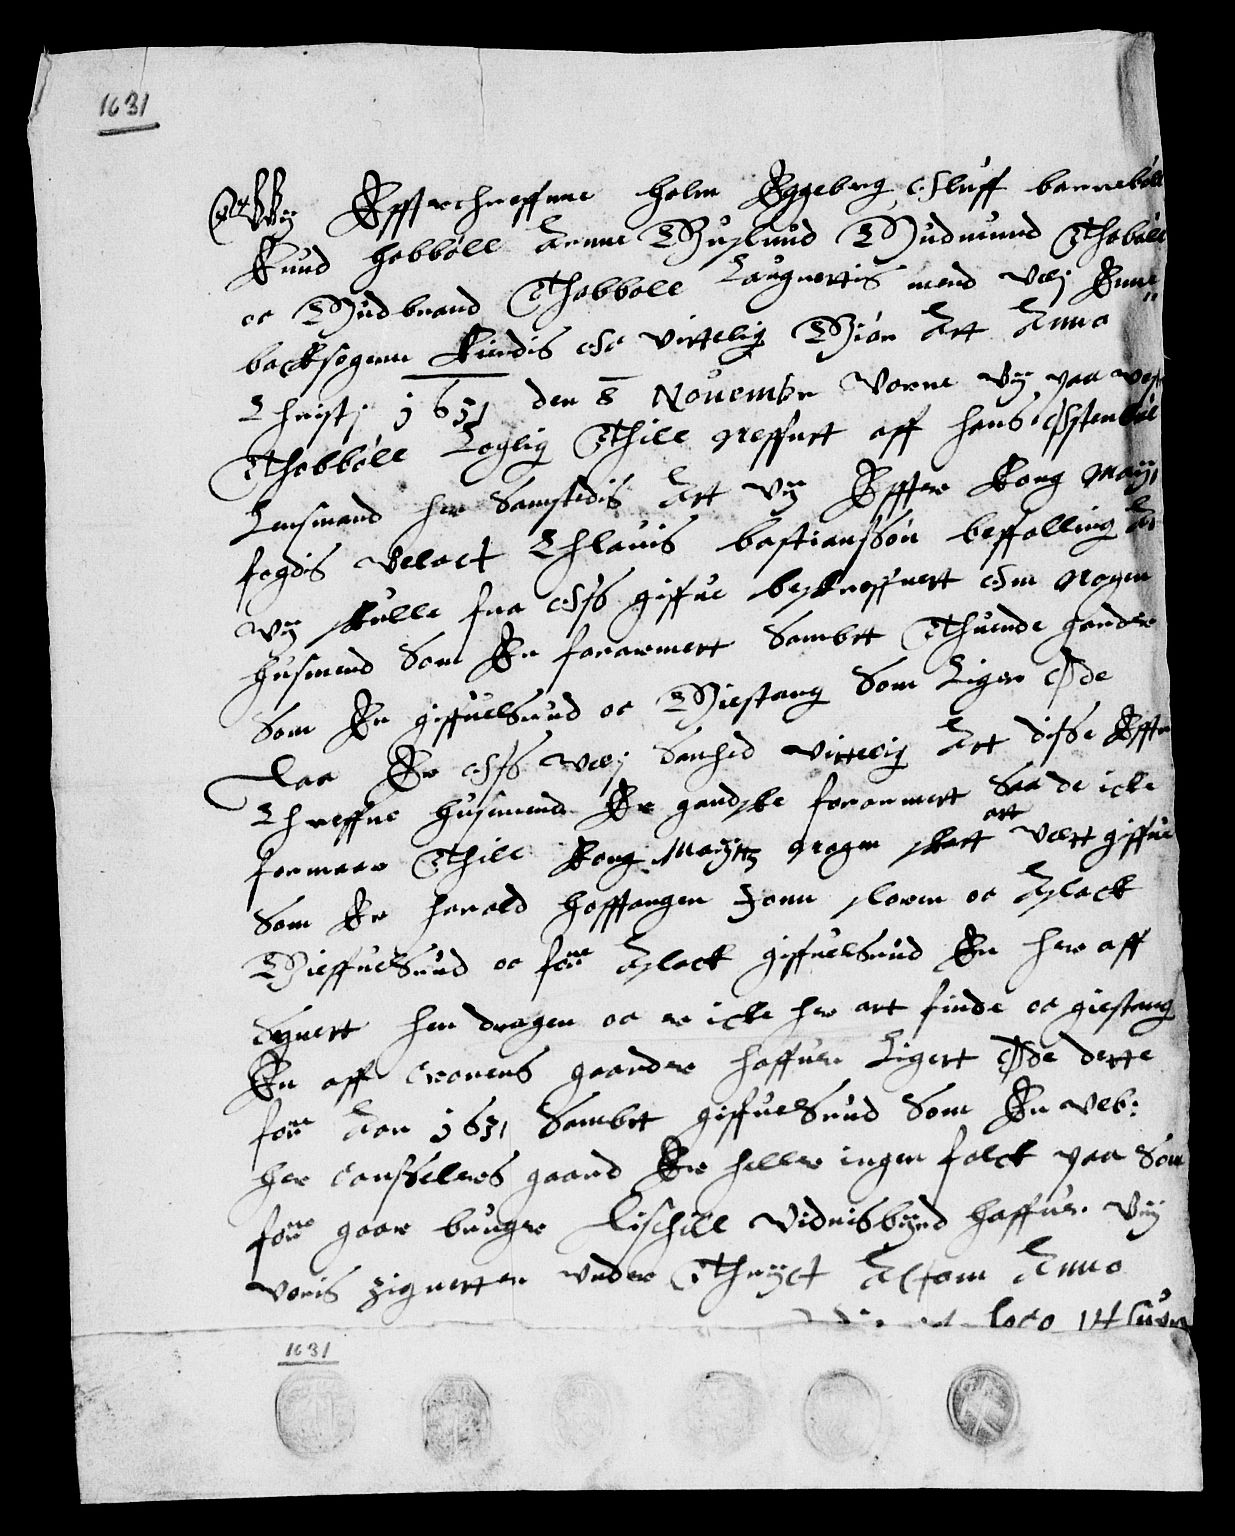 1631
Wij Effterschreffne holm Eggeberg Oluff bannebøll
Knud hobbøll Arnne Biislund Gudmund Thobøll
oc Gudbrand Thobboll Laugrettis mend udj Enne
backsogenn Kiendis oc vitterlig Giør Att Anno
Christj 1631 den 8 Nouembr Vorne Vij paa
Thobbøll Loglig Thill Neffnt aff hans Østenbøl
Lensmand her Samstedis Att Vij Effter Kong Maij:
fogdis Velact Chlauis bastianssøn beffalling At
Vij skulle fra Oss giffue beskreffuett Om Nogen
husmend Som Er forarmett Sambtt Thuende gaarder
Som Er giffuelsrud oc Giestang Som Liger Øde
Daa Er Oss udj Sanhed vitterlig Att disse Effter
Chreffne husmend Er gandske forarmett Saa de icke
formaar Thill Kong Maijttz Nogen skatt att Uett giffue
Som Er harald hoffhagen Jonn sloren oc Aslack
Gieffuelsrud oc forne Aslack giffuelsrud Er her aff
Sognett hen dragen oc er icke her att finde oc giestang
Er aff Cronens gaarder haffuer Ligett Øde dette
forne Aar 1631 Sambtt giffuelsrud Som Er Velb:
her Cansselers gaard Er heller ingen folck paa Som
forne gaar bruger Til Vidnisbyrd haffuer Vij
Voris zignetter under Thryct Actom Anno
loco
1631